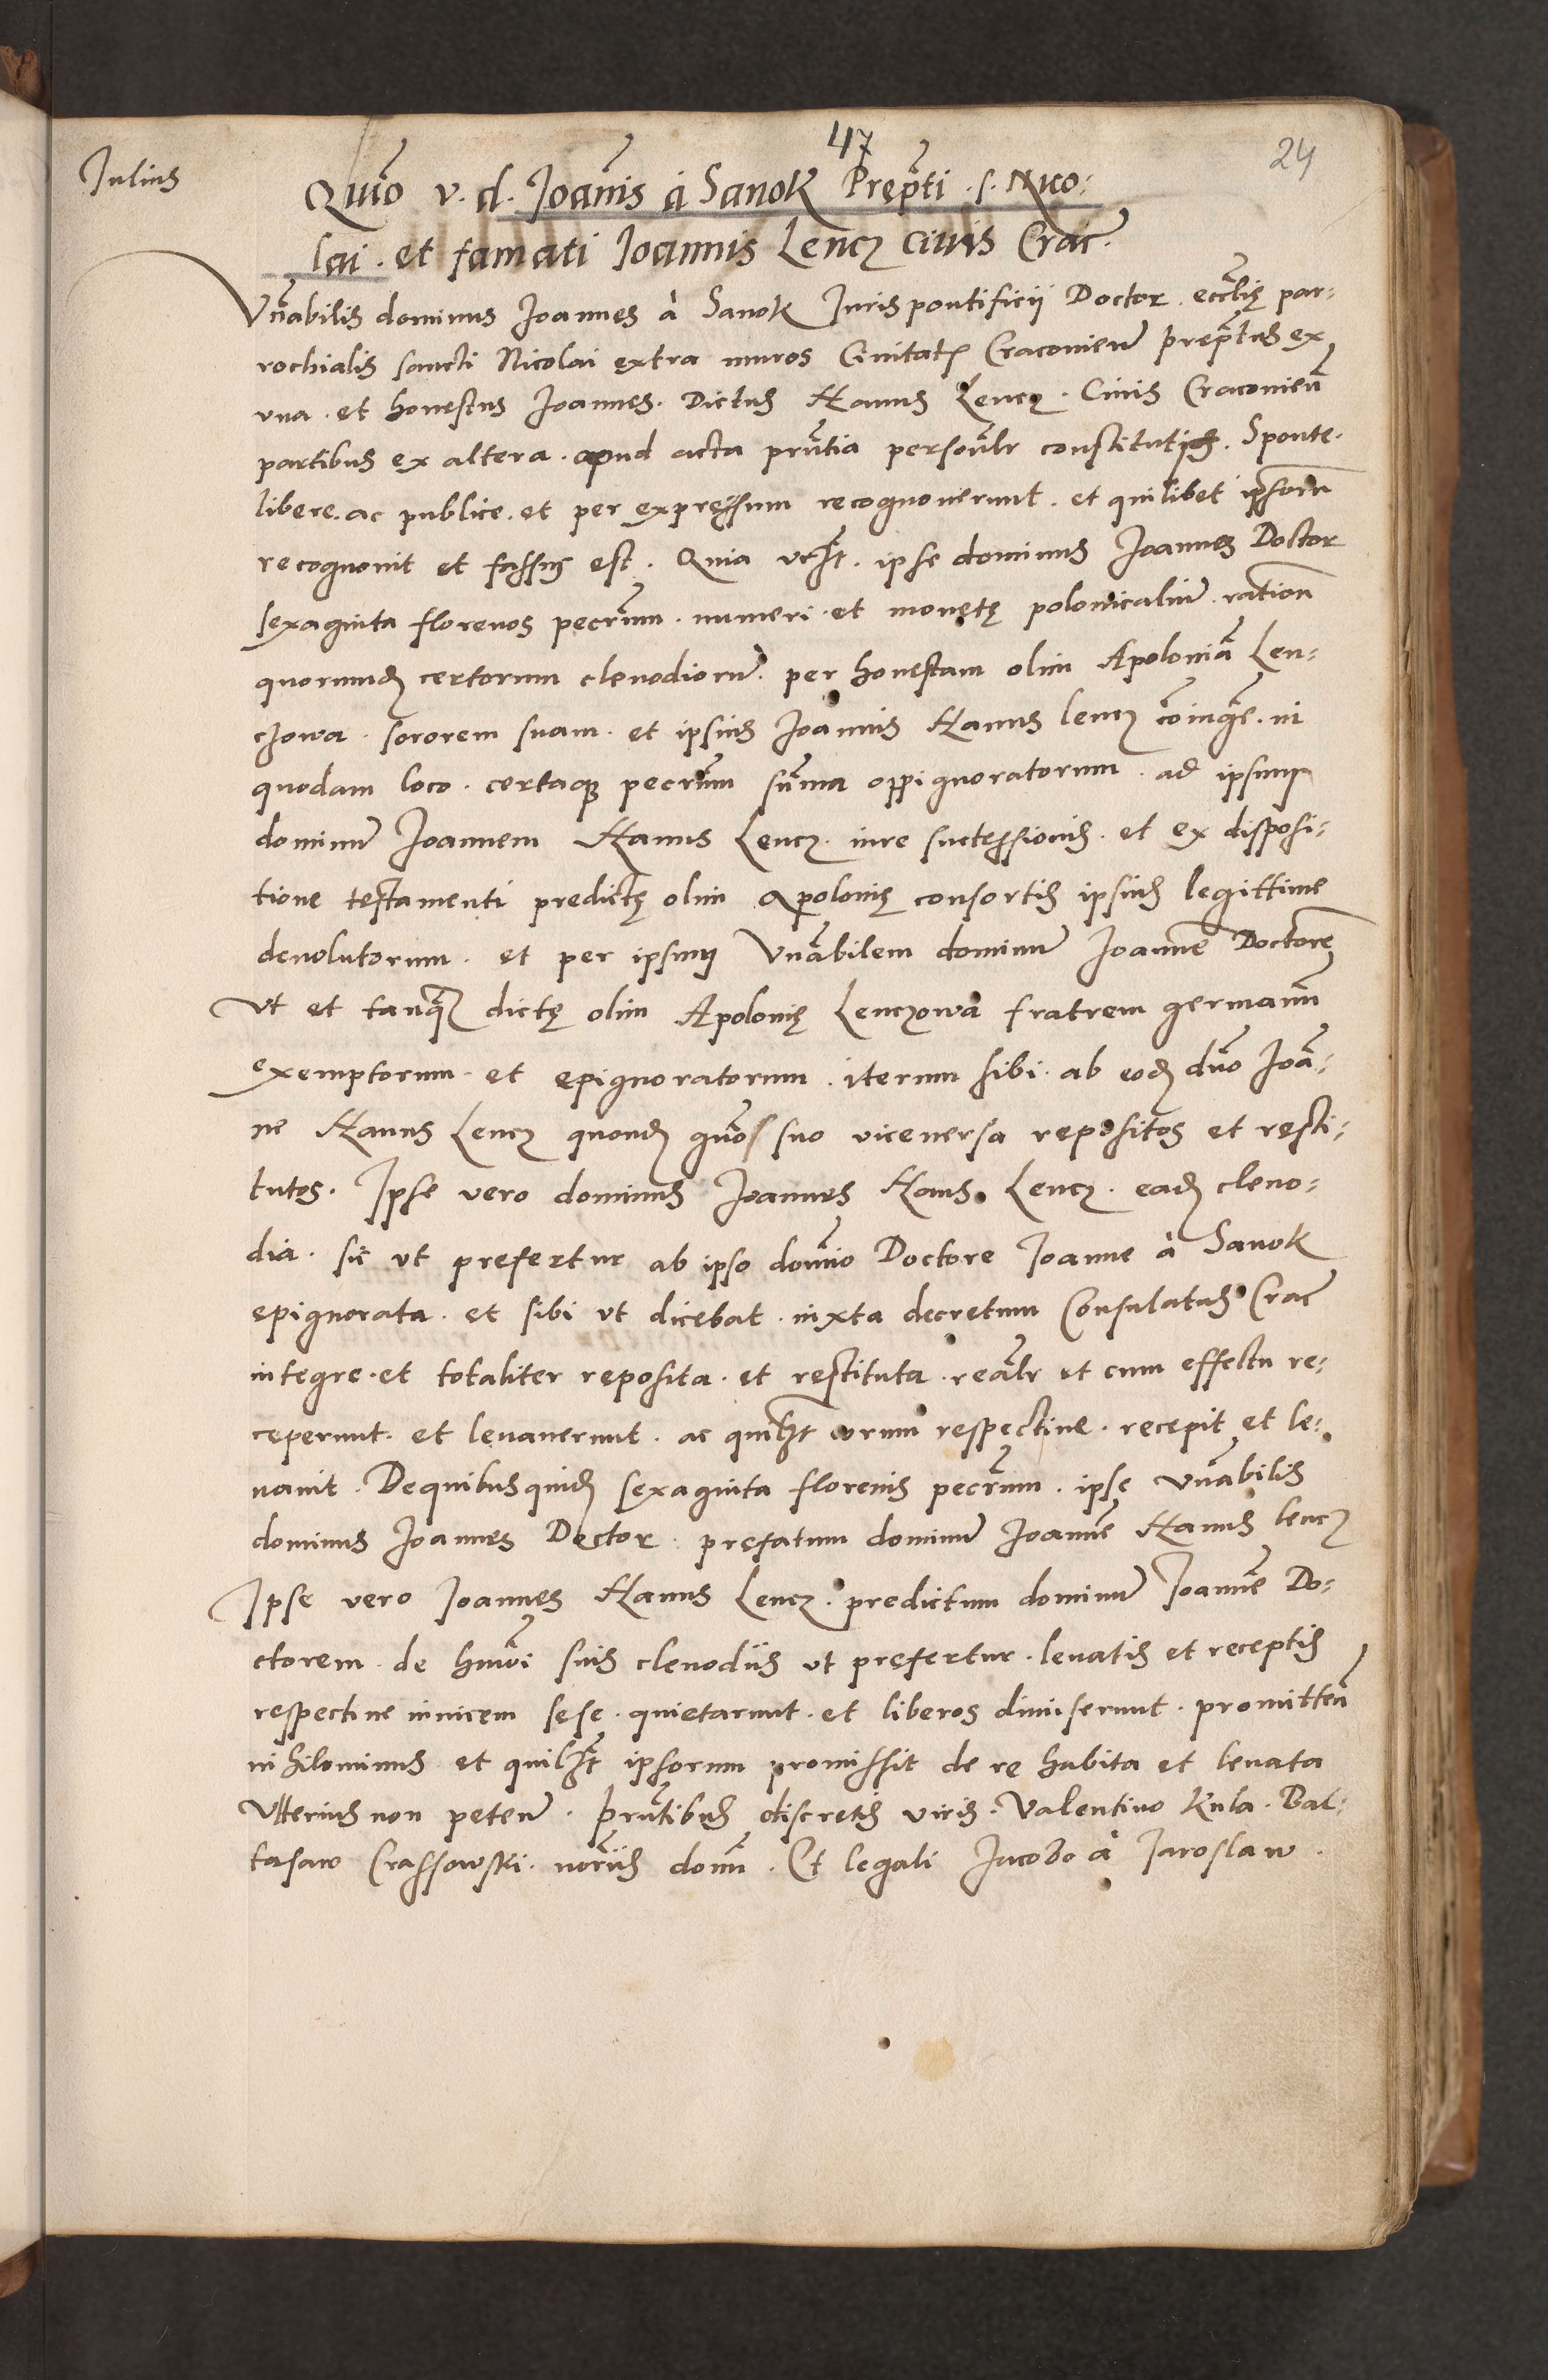 47
24
Iulius
Quito v. d. Ioannis à Sanok Prepti s. Nico:
lai. et famati Ioannis Lencz civis Crac.
Vnabilis dominus Ioannes à Sanok Iuris pontificii Doctor. ecclię par:
rochialis sancti Nicolai extra muros Civitatis Cracovien prepttus ex
vna. et honestus Ioannes. Dictus Hanus Lencz. Civis Cracovien
partibus ex altera. apud acta pruntia personalr constituti. Sponte.
libere. ac publice. et per expressum recognoverunt. et quilibet ipsoru
recognouit et fassus est. Quia ipse dominus Ioannes Doctor
sexaginta florenos pecrum. numeri. et monetę polonicaliu. ration
quorumd certorum clenodioru. per honestam olim Apoloniã Len:
czowa. sororem suam. et ipsius Ioannis Hanus Lencz coingē. in
quodam loco. certaque pecrum suma oppignoratorum. ad ipsum
dominu Ioannem Hanus Lencz. iure successionis. et ex disposi:
tione testamenti predictę olim Apolonię consortis ipsius legittime
devolutorum. et per ipsum Vnabilem dominu Ioanne Doctore
Vt et tanqz dictę olim Apolonię Lenczowa fratrem germanu
exemptorum. et epignoratorum. iterum sibi. ab eod duo Ioã:
ne Hanus Lencz quond suo viceversa repositos et resti:
tutos. Ipse vero dominus Ioannes Hanus Lencz. ead cleno:
dia. sic ut prefertur ab ipso domio Doctore Ioanne à Sanok
epignorata. et sibi ut dicebat. iuxta decretum Consulatus Crac
integre. et totaliter reposita. et restituta. realr et cum effectu re:
ceperunt. et levaverunt. ac quilibt eorum respective. recepit et le:
vavit. De quibus quid sexaginta florenis pecrum. ipse vnabilis
dominus Ioannes Doctor. prefatum dominu Ioanne Hanus Lencz
Ipse vero Ioannes Hanus Lencz. predictum dominu Ioanne Do:
ctorem. de humoi suis clenodiis ut prefertur. levatis et receptis
respective invicem sese. quietarunt. et liberos dimiserunt. promitten
nihilominus et quilibt ipsorum promissit de re habita et levata
Vlterius non peten. pruntibus discretis viris. Valentino Kula. Bal:
tasaro Crassowski. norijs domi. Et legali Iacobo à Iaroslaw.